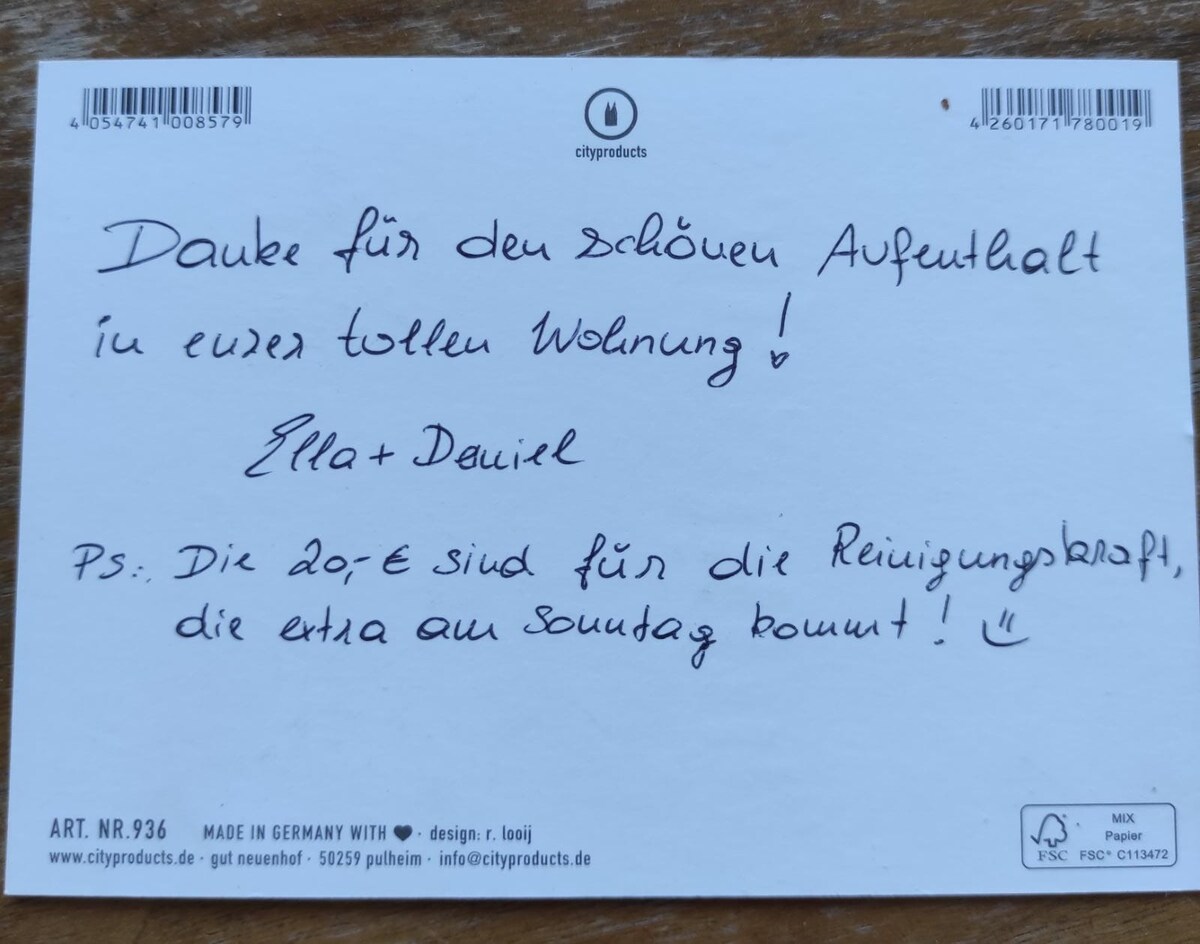 4 054741 008579
cityproducts
4 260171 780019
Danke für den schönen Aufenthalt
in eurer tollen Wohnung!
Ella + Daniel
Ps.: Die 20,-€ sind für die Reinigungskraft,
die extra am Sonntag kommt!
ART. NR.936 MADE IN GERMANY WITH ♥ · design: r. looij
www.cityproducts.de · gut neuenhof · 50259 pulheim · info@cityproducts.de
MIX
Papier
FSC FSC® C113472